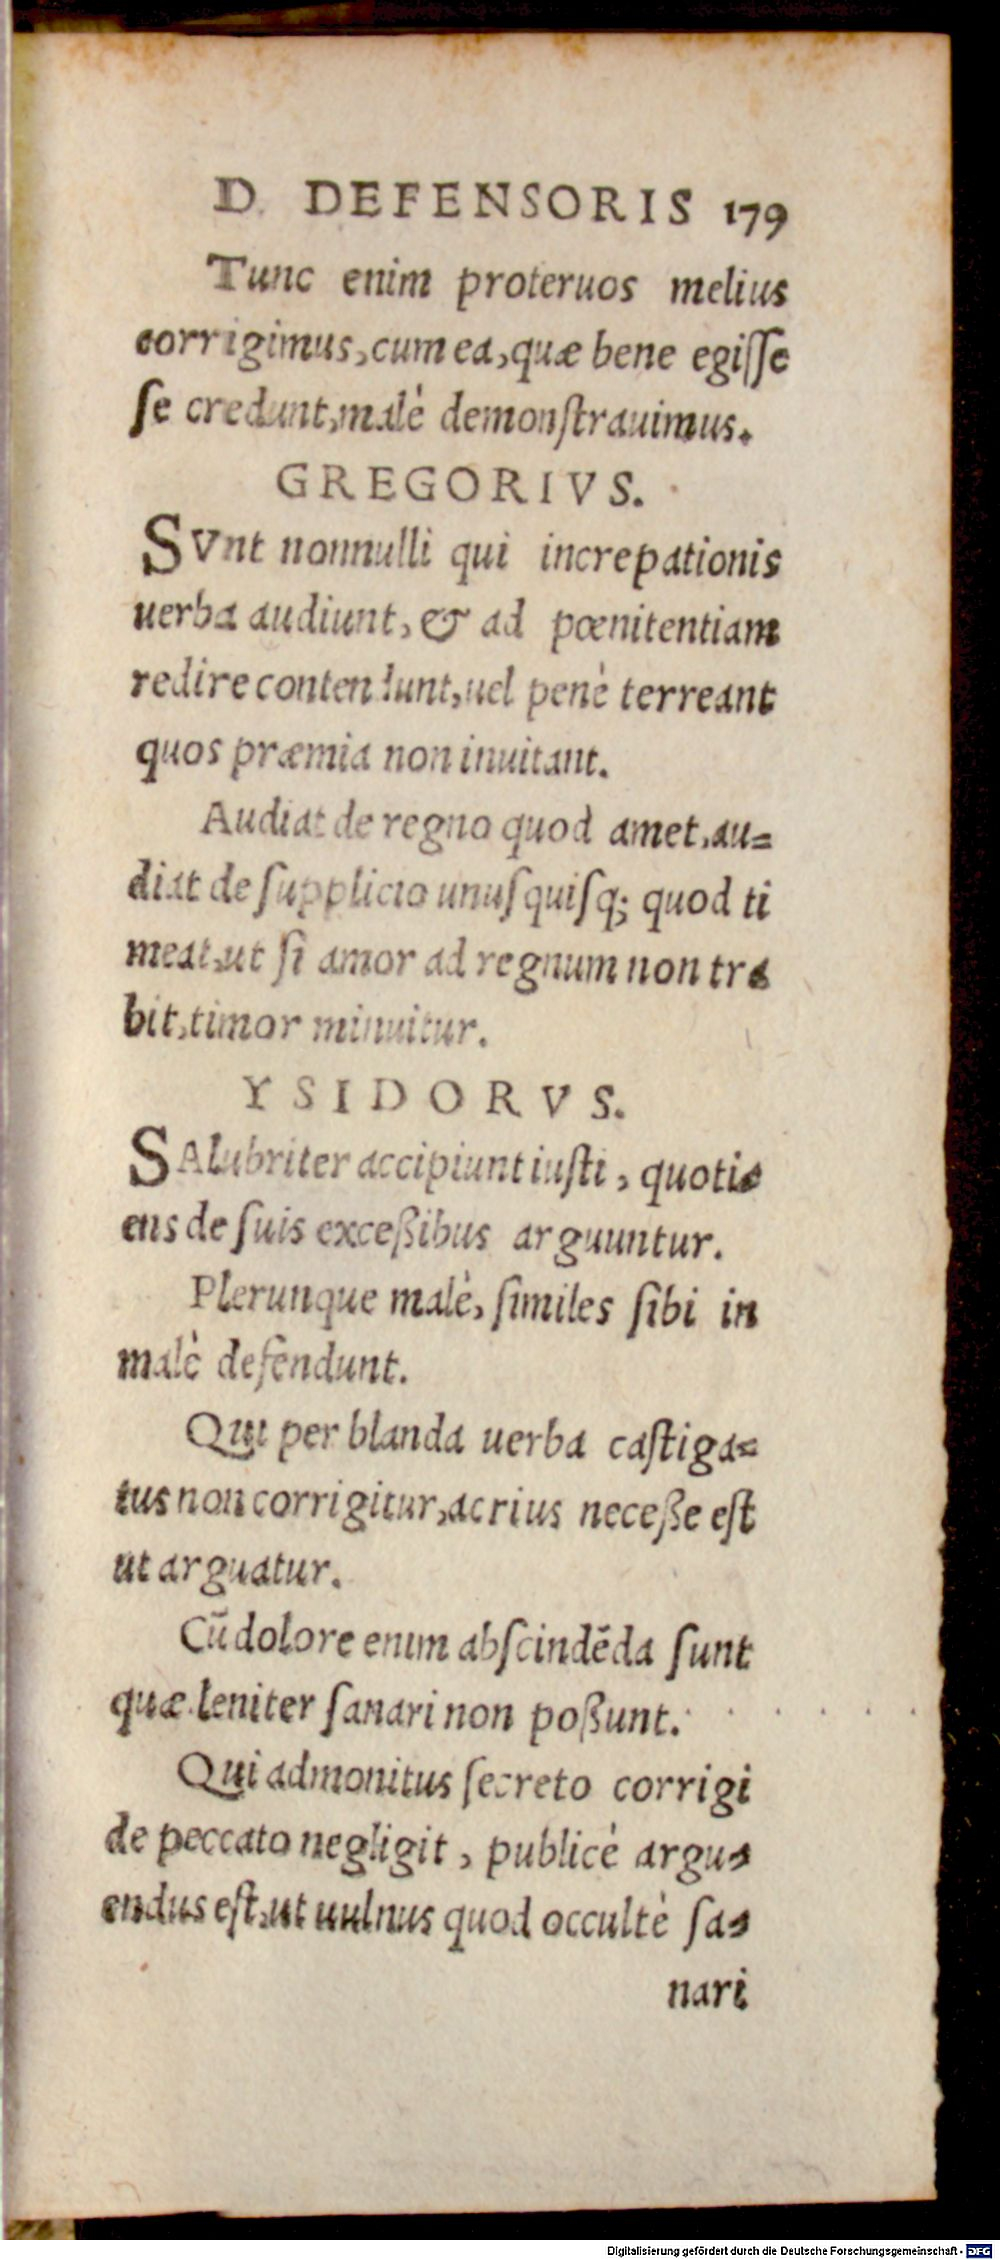 D. DEFENSORIS 179
Tunc enim proteruos melius
corrigimus, cum ea, quæ bene egiſſe
ſe credunt, malè demonſtrauimus.
GREGORIVS.
SVnt nonnulli qui increpationis
uerba audiunt, & ad pœnitentiam
redire contendunt, uel penè terreant
quos præmia non inuitant.
Audiat de regno quod amet, au=
diat de ſupplicio unuſquiſq; quod ti
meat, ut ſi amor ad regnum non tra
bit, timor minuitur.
YSIDORVS.
SAlubriter accipiunt iuſti, quotie
ens de ſuis exceßibus arguuntur.
Plerunque malè, ſimiles ſibi in
malè defendunt.
Qui per blanda uerba caſtiga=
tus non corrigitur, acrius neceße eſt
ut arguatur.
Cū dolore enim abſcindēda ſunt
quæ leniter ſanari non poßunt.
Qui admonitus ſecreto corrigi
de peccato negligit, publicè argu=
endus eſt, ut uulnus quod occultè ſa=
nari
Digitalisierung gefördert durch die Deutsche Forschungsgemeinschaft - DFG